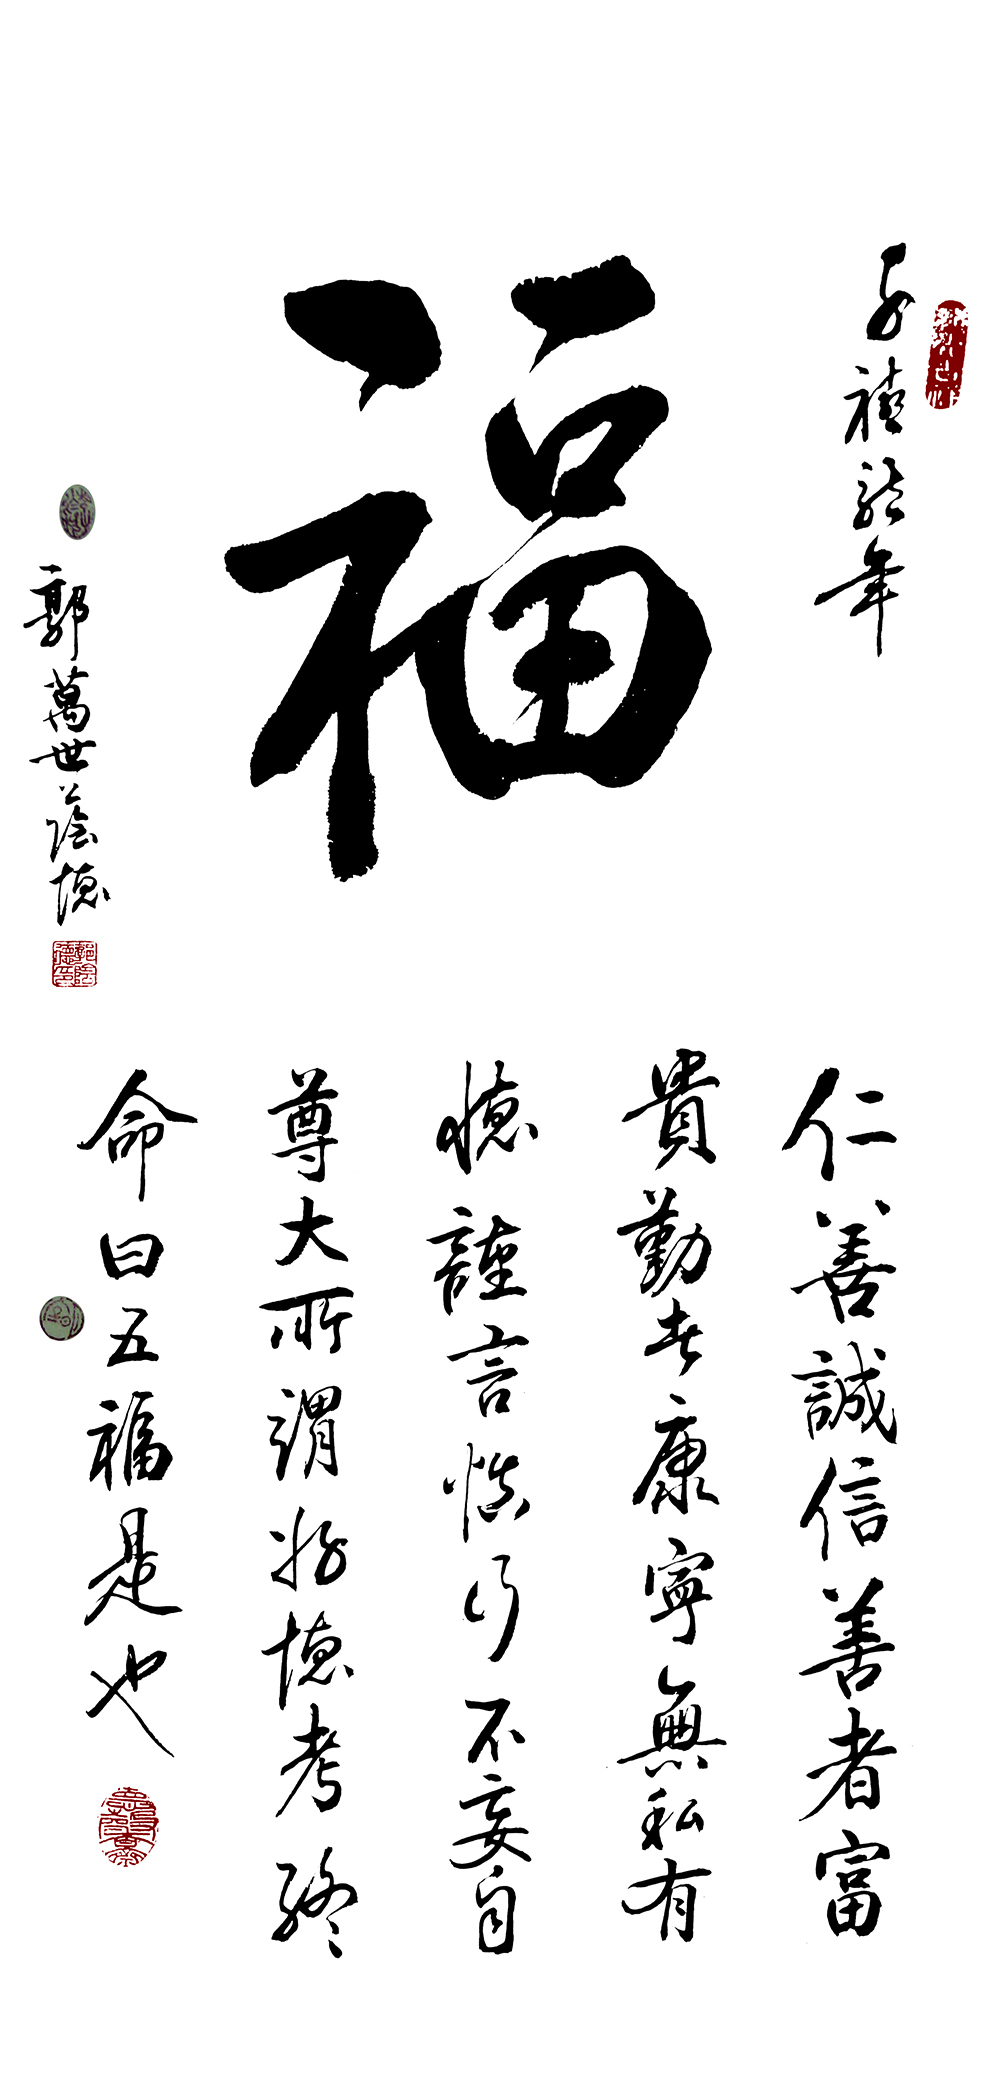 千禧龍年
福
郭萬世蔭德
郭蔭德印
仁善誠信善者富
貴勤者康寧無私有
德謹言慎行不妄自
尊大所謂好德考終
命曰五福是也